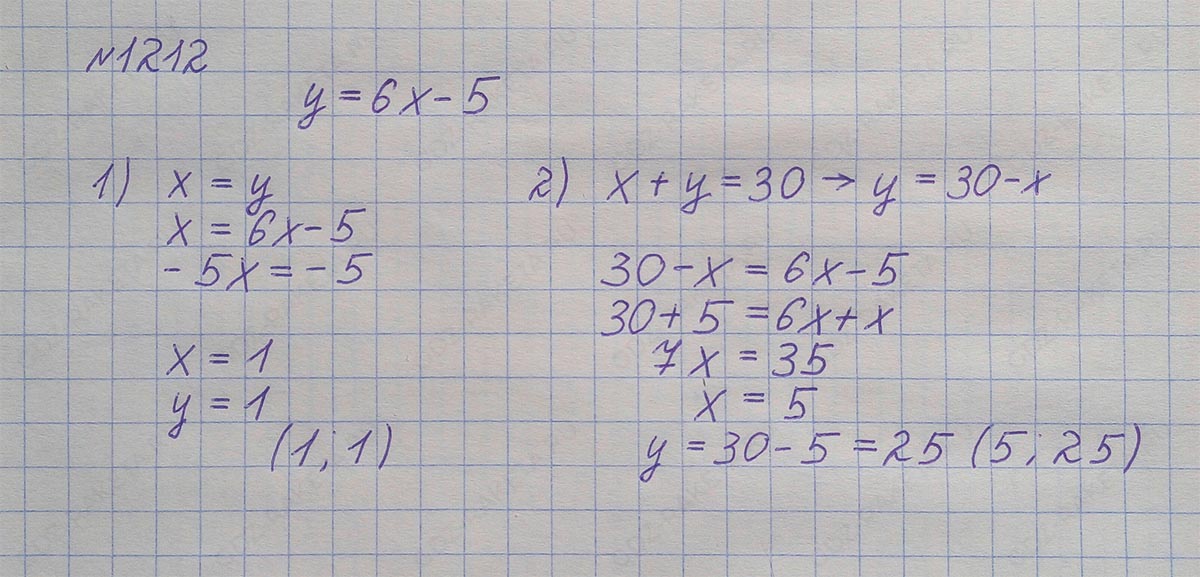 №1212
y = 6x - 5
1) x = y
x = 6x - 5
- 5x = - 5
x = 1
y = 1
(1; 1)
2) x + y = 30 → y = 30 - x
30 - x = 6x - 5
30 + 5 = 6x + x
7x = 35
x = 5
y = 30 - 5 = 25 (5; 25)